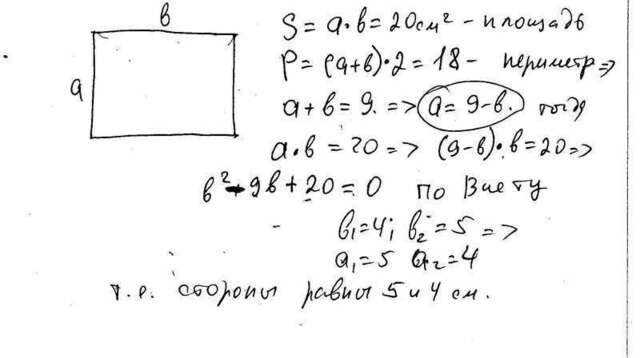 в
a
S = a·в = 20 см² – площадь
P = (a+в)·2 = 18 – периметр =>
a + в = 9. => a = 9-в. тогда
a·в = 20 => (9-в)·в = 20 =>
в² - 9в + 20 = 0 по Виету
в₁=4; в₂=5 =>
a₁=5 a₂=4
т.е. стороны равны 5 и 4 см.